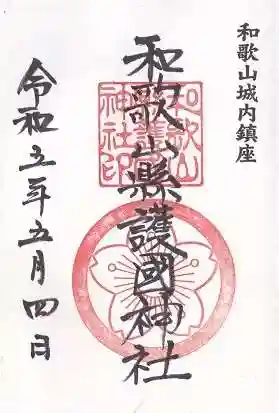 和歌山城内鎮座
和歌山縣護國神社
和歌山縣護國神社印
令和五年五月四日